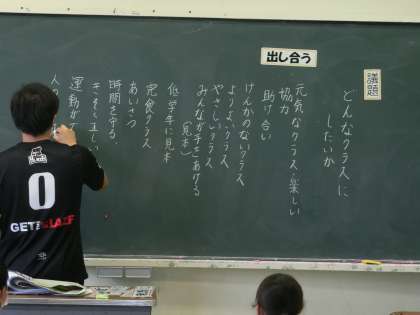 出し合う
議題
どんなクラスに
したいか
元気なクラス・楽しい
協力
助け合い
けんかのないクラス
よりよいクラス
やさしいクラス
みんなが手をあげる
(見本)
低学年に見本
完食クラス
あいさつ
時間を守る
きそく正しい
運動が
人の
0
GET